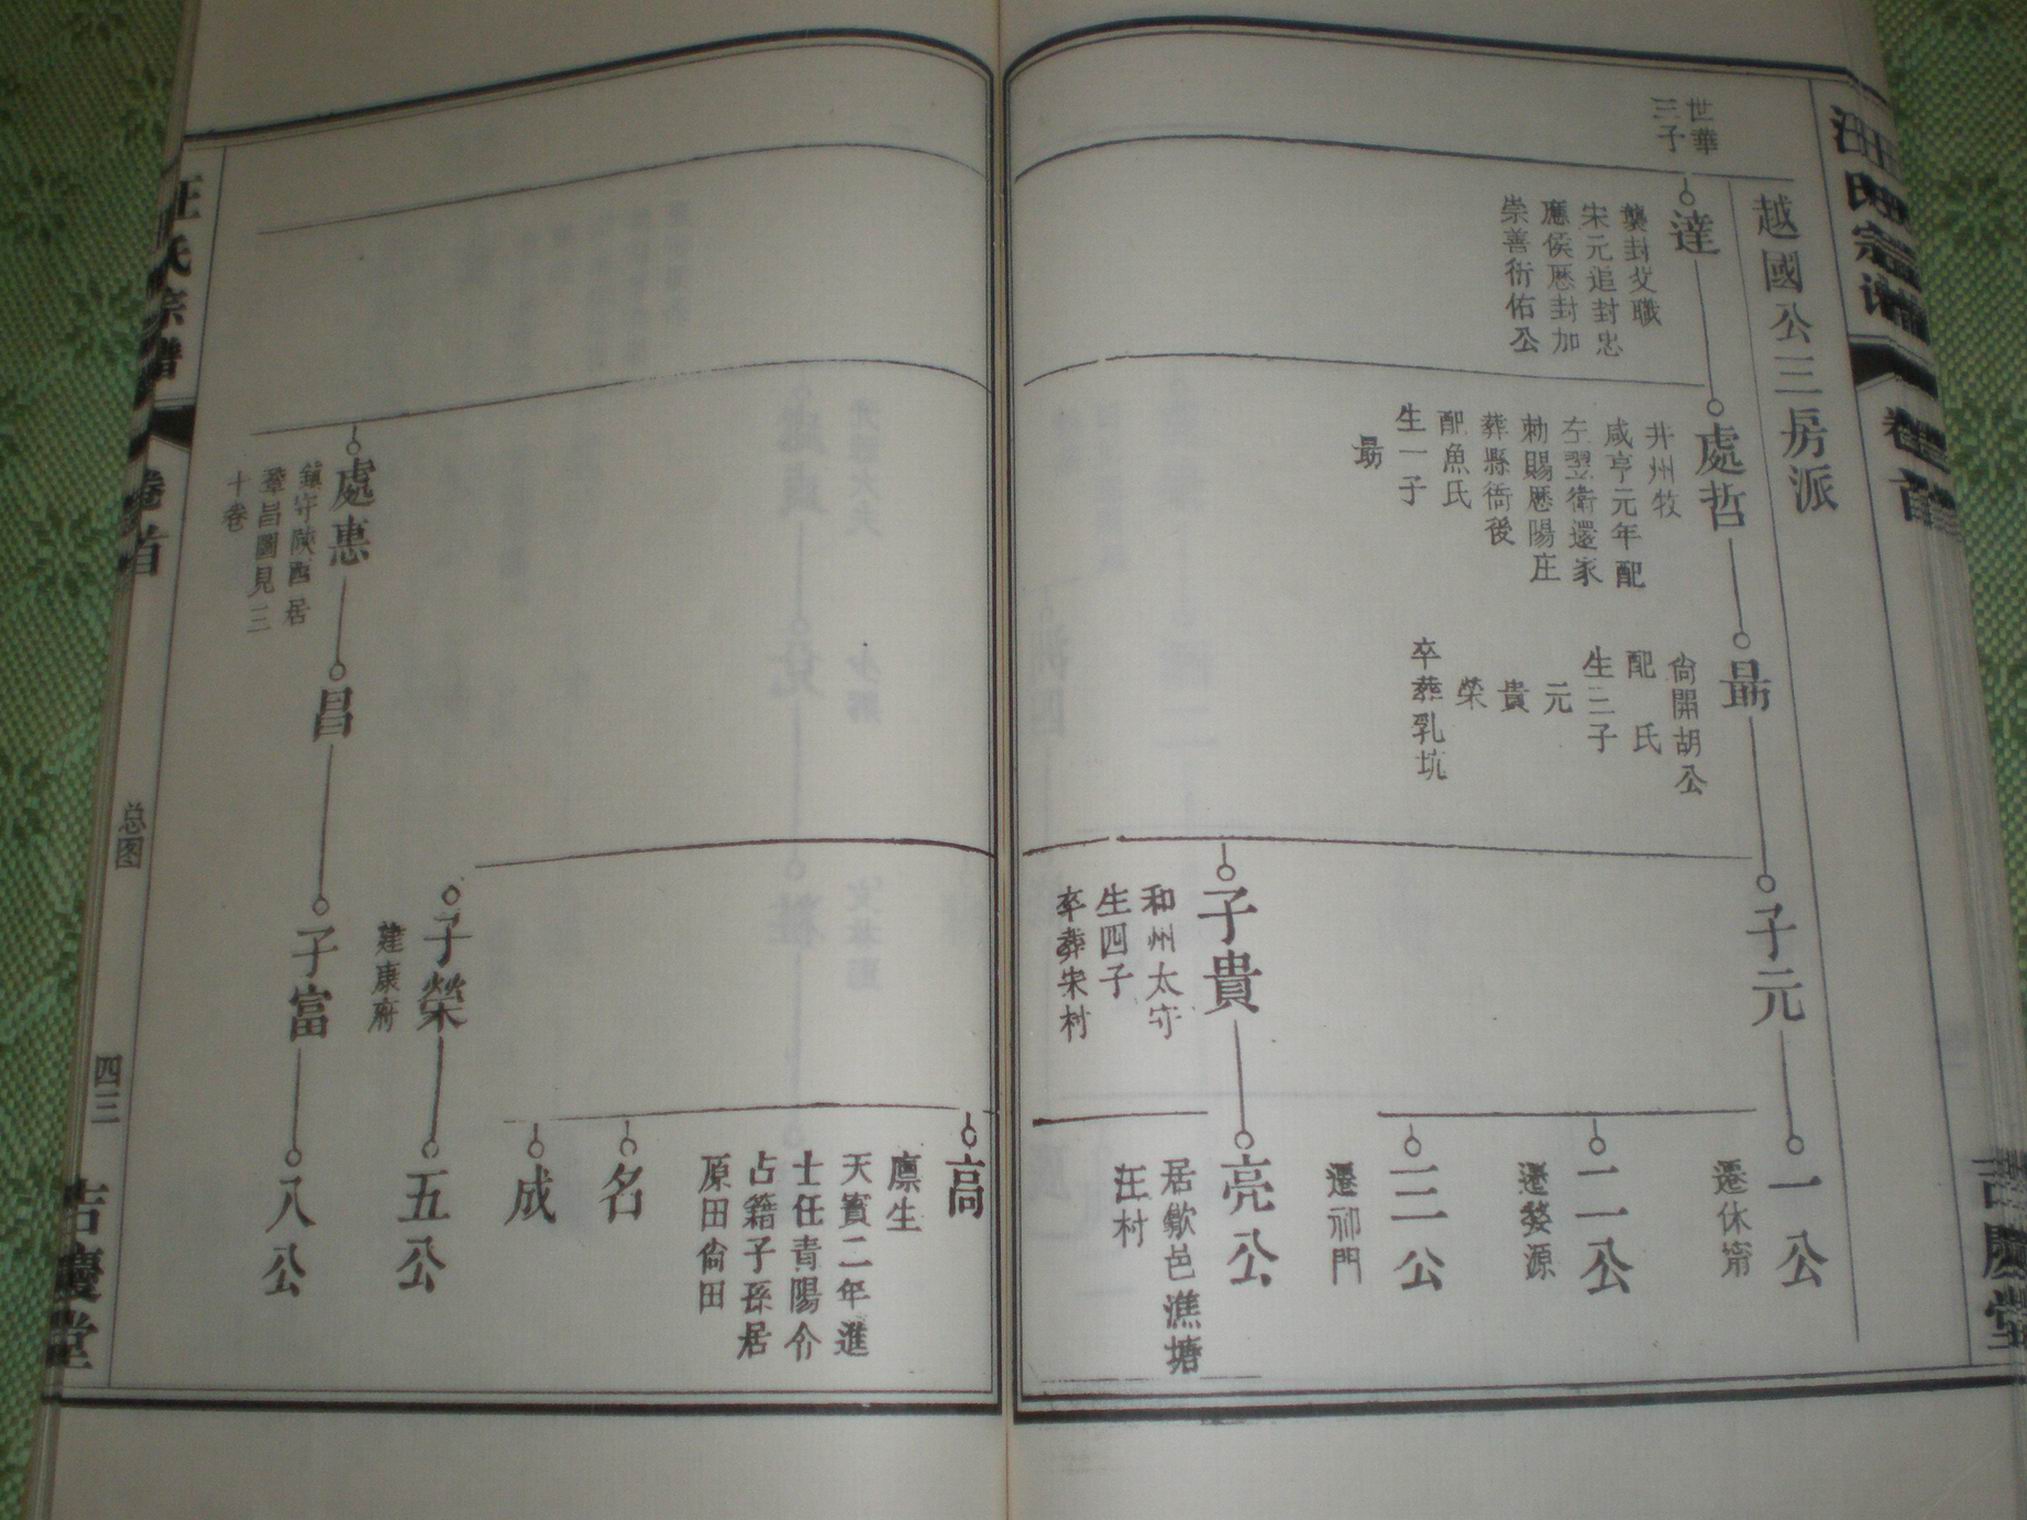 汪氏宗譜
卷首
吉慶堂
越國公三房派
世華
三子
達
襲封父職
宋元追封忠
應侯歷封加
崇善衍佑公
處哲
井州牧
咸亨元年配
左翌衛還家
勅賜歷陽庄
葬縣衙後
配魚氏
生一子
勗
勗
尚開胡公
配 氏
生三子
元
貴
榮
卒葬乳坑
子元
一公
遷休甯
二公
遷婺源
三公
遷祁門
子貴
和州太守
生四子
卒葬宋村
亮公
居歙邑漁塘
汪村
高
廪生
天寳二年進
士任青陽介
占籍子孫居
原田尙田
名
成
子榮
建康府
五公
處惠
鎮守陝西居
鞏昌圖見三
十卷
昌
子富
八公
汪氏宗譜
卷首
总图
四三
吉慶堂